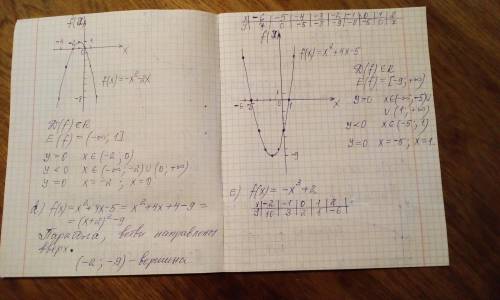 f(x)
-2
x
f(x)=-x²-2x
D(f)∈R
E(f)=(-∞; 1]
y>0 x∈(-2; 0)
y<0 x∈(-∞; -2)∪(0; +∞)
y=0 x=-2; x=0
f(x)=x²+4x-5=x²+4x+4-9=
=(x+2)²-9
Парабола, ветви направлены
вверх.
(-2; -9) - вершина
x -6 -5 -4 -3 -2 -1 0 1 2
y 7 0 -5 -8 -9 -8 -5 0 7
f(x)
f(x)=x²+4x-5
-6 -5
1
1
x
-9
D(f)∈R
E(f)=[-9; +∞)
y>0 x∈(-∞; -5)∪
∪(1; +∞)
y<0 x∈(-5; 1)
y=0 x=-5; x=1
e) f(x)=-x³+2
x -2 -1 0 1 2
y 10 3 2 1 -6